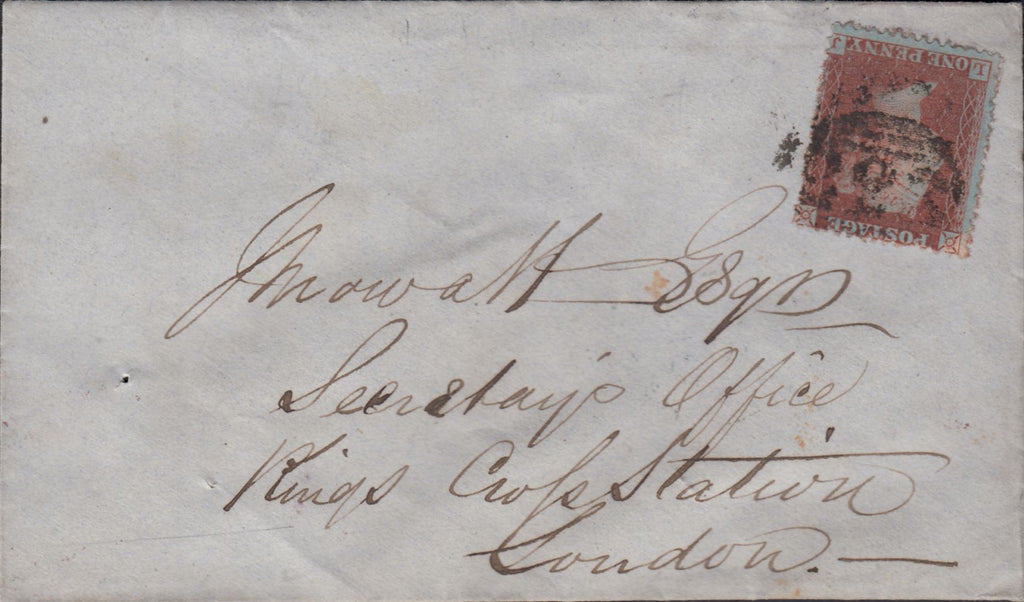 J Mowatt Esqr
Secretay's Office
Kings Cross Station
London.
ONE PENNY
J L
POSTAGE